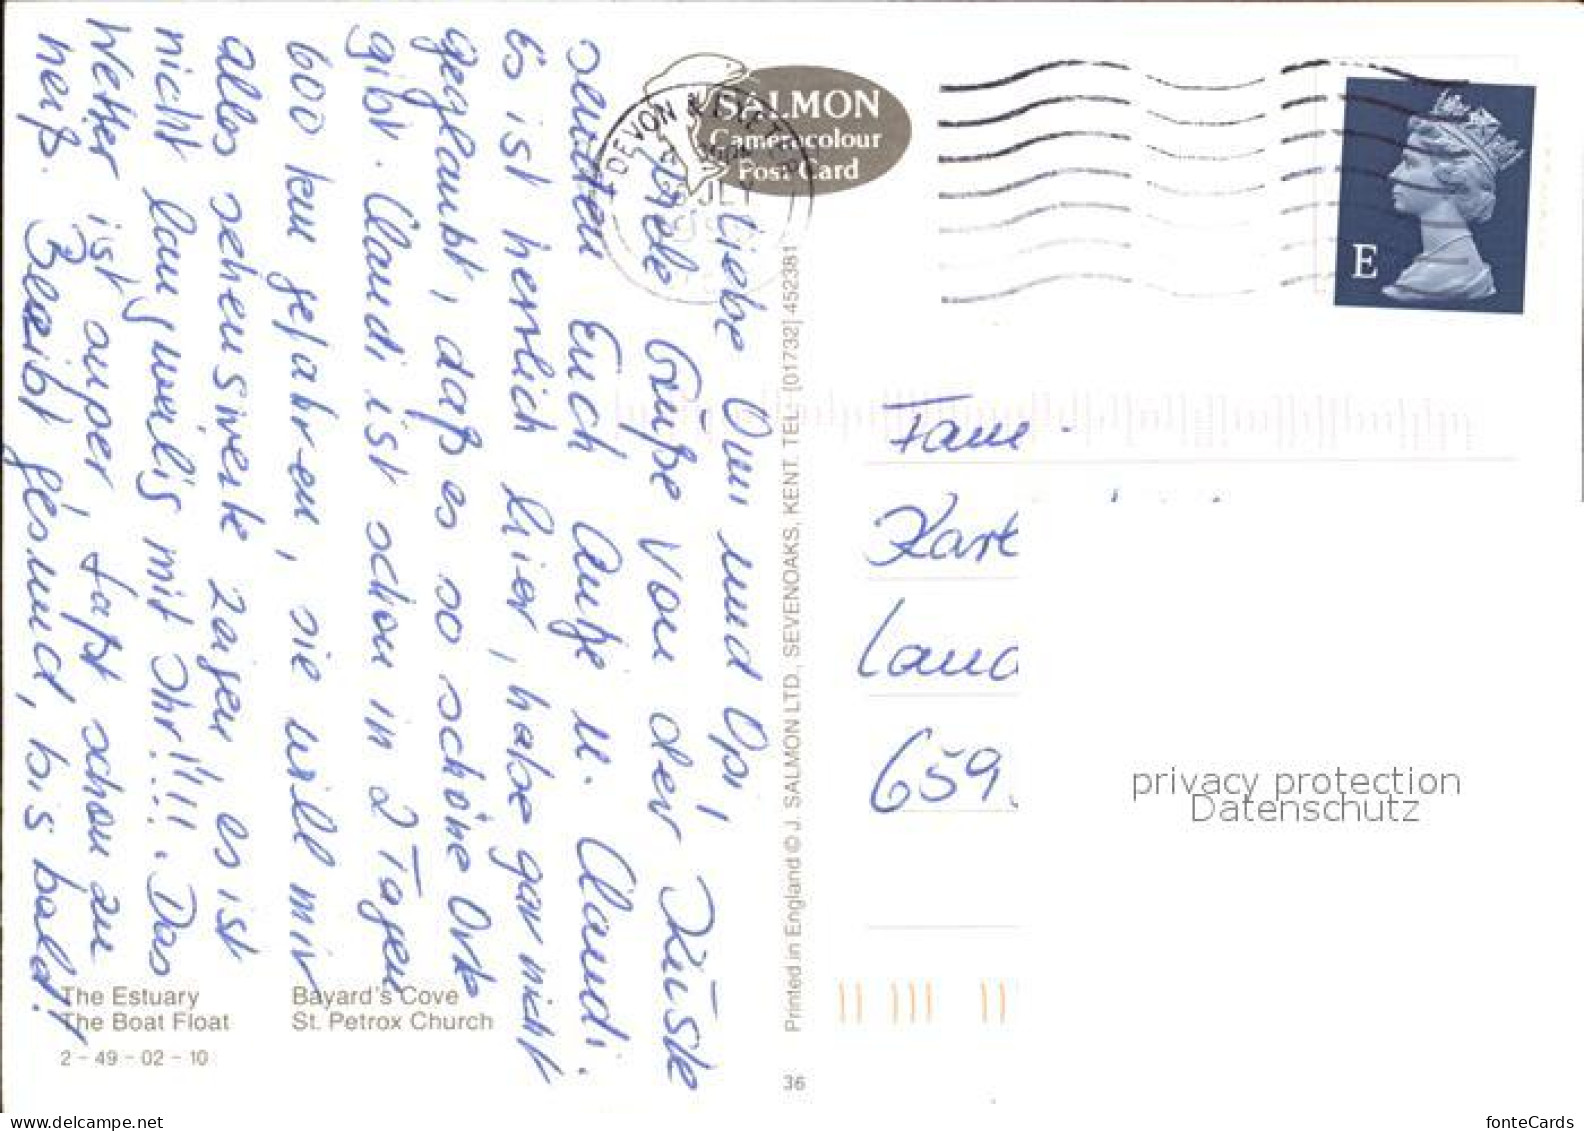 Liebe Omi und Opi,
viele Grüße von der Küste
senden Euch Antje u. Claudi.
Es ist herrlich hier, habe gar nicht
geglaubt, daß es so schöne Orte
gibt. Claudi ist schon in 2 Tagen
600 km gefahren, sie will mir
alles sehenswerte zeigen, es ist
nicht langweilig mit Ihr!!!!. Das
Wetter ist super, fast schon zu
heiß. Bleibt gesund, bis bald!
The Estuary
The Boat Float
Bayard's Cove
St. Petrox Church
2 - 49 - 02 - 10
SALMON
Cameracolour
Post Card
DEVON & EXETER
JLY
Printed in England © J. SALMON LTD., SEVENOAKS, KENT. TEL: [01732] 452381
36
E
Fam.
Kar
Land
659
privacy protection
Datenschutz
www.delcampe.net
fonteCards